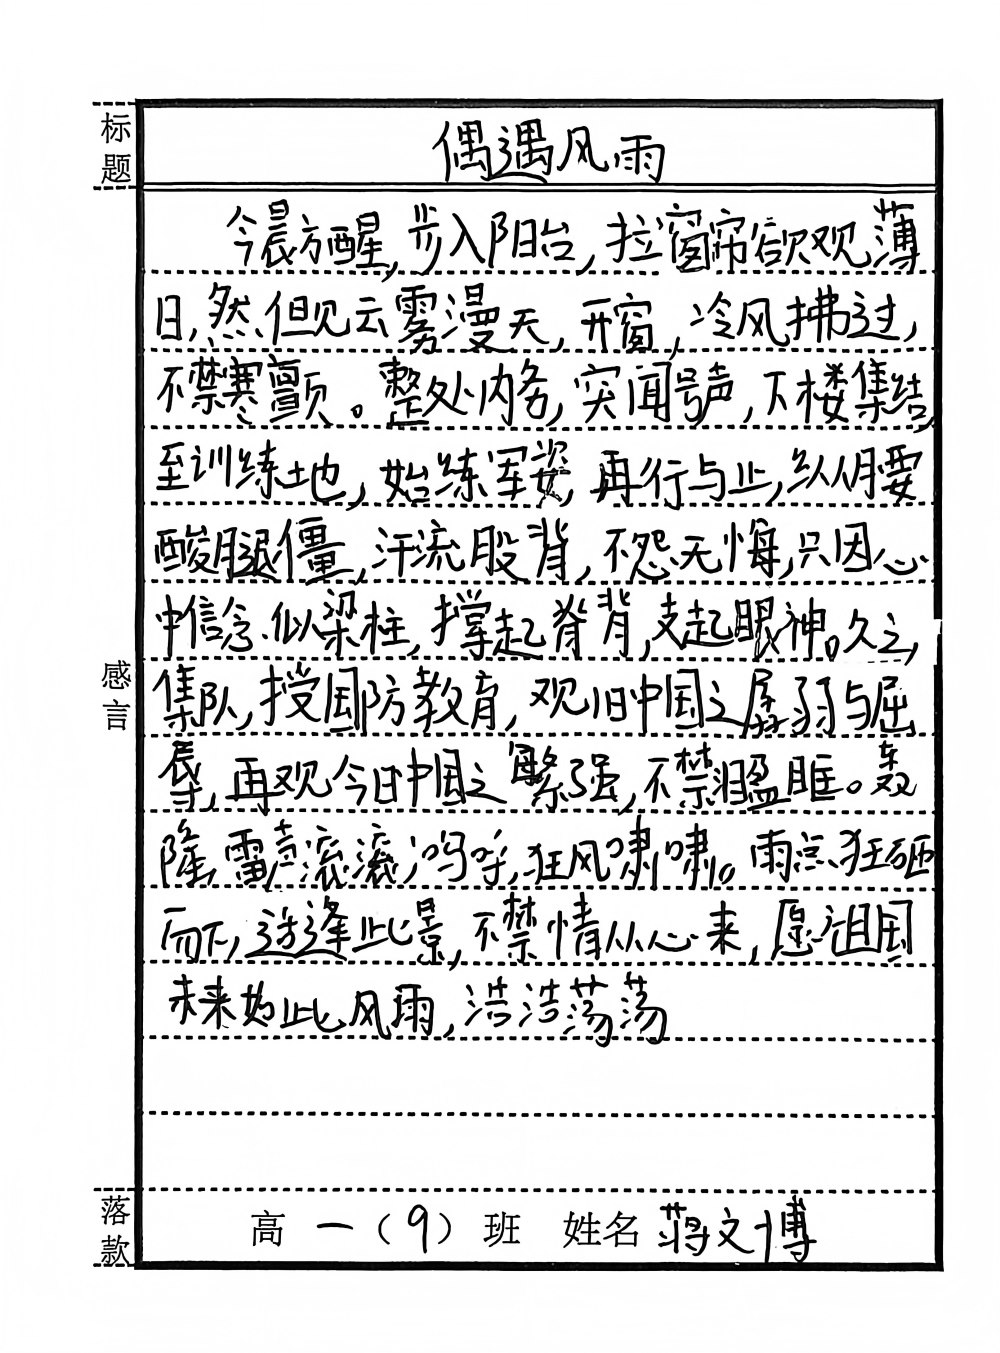 标题
偶遇风雨
今晨方醒,步入阳台,拉窗帘欲观薄
日,然,但见云雾漫天,开窗,冷风拂过,
不禁寒颤。整处内务,突闻号声,下楼集结,
至训练地,始练军姿,再行与止,纵腰
酸腿僵,汗流股背,不怨无悔,只因心
中信念似梁柱,撑起脊背,支起眼神。久之,
集队,授国防教育,观旧中国之孱弱与屈
辱,再观今日中国之繁强,不禁泪盈眶。轰
隆,雷声滚滚;呜呼,狂风啸啸。雨点狂砸
而下,逢此景,不禁情从心来,愿祖国
未来如此风雨,浩浩荡荡
感言
落款
高一(9)班 姓名 蒋文博